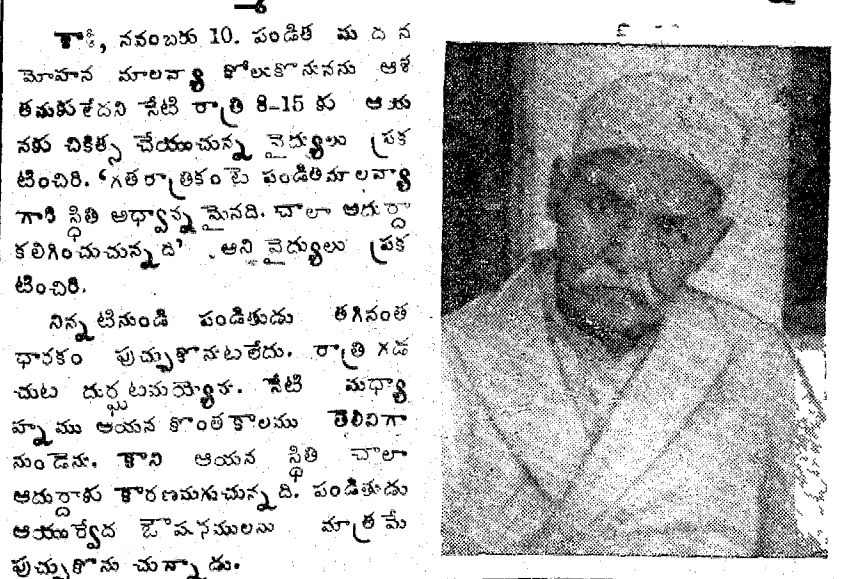 కాశీ, నవంబరు 10. పండిత మదన
మోహన మాలవ్యా కోలుకొనునను ఆశ
తమకులేదని నేటి రాత్రి 8-15 కు ఆయ
నకు చికిత్స చేయుచున్న వైద్యులు ప్రక
టించిరి. 'గతరాత్రికంటె పండితమాలవ్యా
గారి స్థితి అధ్వాన్నమైనది. చాలా ఆదుర్దా
కలిగించుచున్నది' .అని వైద్యులు ప్రక
టించిరి.
నిన్నటినుండి పండితుడు తగినంత
ధారకం పుచ్చుకొనుటలేదు. రాత్రి గడ
చుట దుర్ఘటమయ్యెను. నేటి మధ్యా
హ్నము ఆయన కొంతకాలము తెలివిగా
నుండెను. కాని ఆయన స్థితి చాలా
ఆదుర్దాకు కారణమగుచున్నది. పండితుడు
ఆయుర్వేద ఔషసములను మాత్రమే
పుచ్చుకొను చున్నాడు.